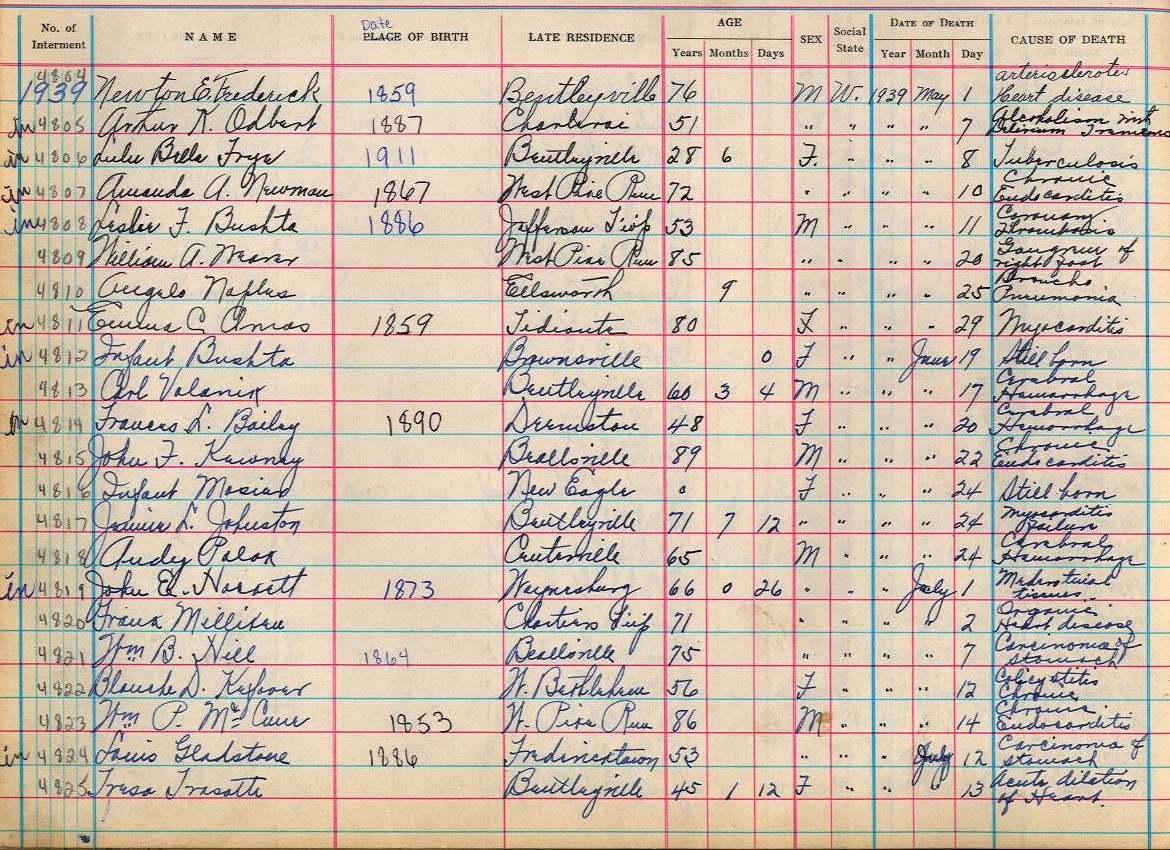 No. of Interment NAME Date PLACE OF BIRTH LATE RESIDENCE AGE Years Months Days SEX Social State DATE OF DEATH Year Month Day CAUSE OF DEATH
4804 1939 Newton E. Frederick 1859 Bentleyville 76 M W. 1939 May 1 arteriosclerotic Heart disease
in 4805 Arthur K. Odbert 1887 Charleroi 51 " " " " 7 Alcoholism with Delirium Tremens
in 4806 Lulu Bella Frye 1911 Bentleyville 28 6 F. " " " 8 Tuberculosis
in 4807 Amanda A. Newman 1867 West Pike Run 72 " " " " 10 Chronic Endocarditis
in 4808 Leslie F. Bushta 1886 Jefferson Twp 53 M " " " 11 Coronary Thrombosis
4809 William A. Weaver West Pike Run 85 " " " " 20 Gangrene of right foot
4810 Angelo Naples Ellsworth 9 " " " " 25 Broncho Pneumonia
in 4811 Emma C. Amos 1859 Tidioute 80 F " " " 29 Myocarditis
in 4812 Infant Bushta Brownsville 0 F " " June 19 Still born
4813 Carl Volanik Bentleyville 60 3 4 M " " " 17 Cerebral Hemorrhage
in 4814 Frances L. Bailey 1890 Deemston 48 F " " " 20 Cerebral Hemorrhage
4815 John F. Beallsville 89 M " " " 22 Chronic Endocarditis
4816 Infant Mosier New Eagle 0 F " " " 24 Still born
4817 Jennie L. Johnston Bentleyville 71 7 12 " " " " 24 Myocarditis failure
4818 Andy Polok 65 M " " " 24 Cerebral Hemorrhage
in 4819 John E. Waynesburg 66 0 26 " " " July 1 tissues
4820 Frank Milliken Chartiers Twp 71 " " " " 2 Organic Heart disease
4821 Wm B. Hill 1864 Beallsville 75 " " " " 7 Carcinoma of stomach
4822 Blanche D. W. Bethlehem 56 F " " " 12 Chronic
4823 Wm P. 1853 W. Pike Run 86 M " " " 14 Chronic Endocarditis
in 4824 Louis Gladstone 1886 Fredricktown 53 " " " July 12 Carcinoma of stomach
4825 Tresa Trasatte Bentleyville 45 1 12 F " " " 13 Acute dilation of Heart.